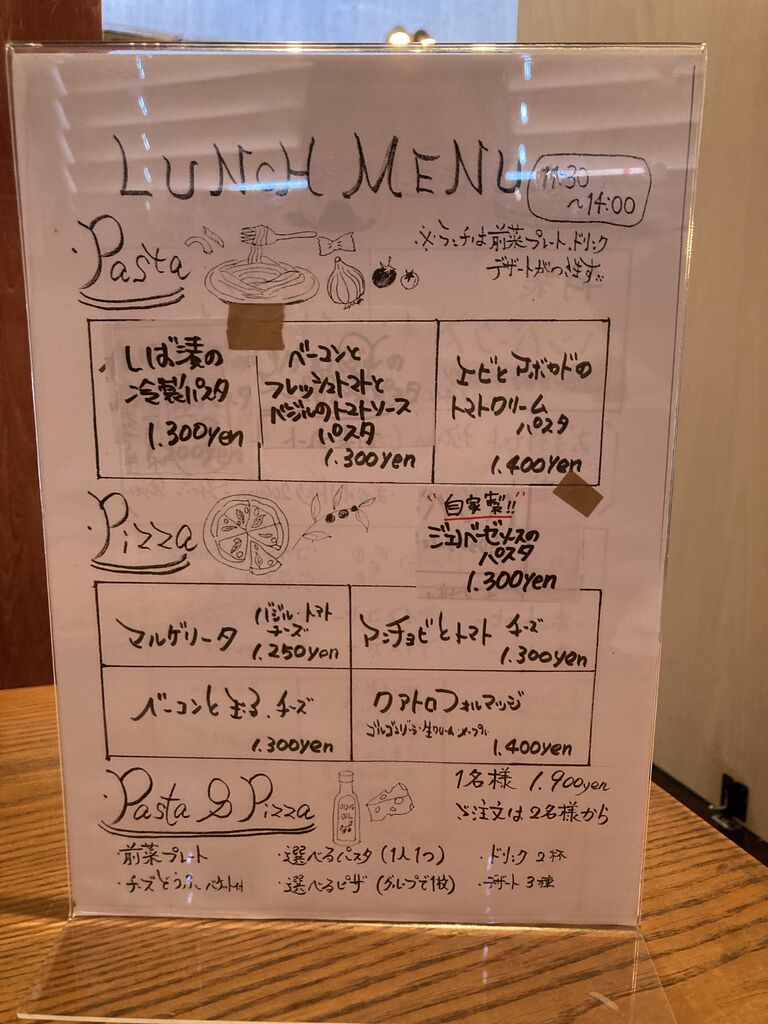 LUNCH MENU
11:30
～14:00
・Pasta
※ランチは前菜プレート、ドリンク
デザートがつきます。
しば漬の
冷製パスタ
1.300yen
ベーコンと
フレッシュトマトと
バジルのトマトソース
パスタ
1.300yen
エビとアボカドの
トマトクリーム
パスタ
1.400yen
・Pizza
"自家製!!"
ジェノベーゼソースの
パスタ
1.300yen
マルゲリータ
バジル・トマト
チーズ
1.250yen
アンチョビとトマト チーズ
1.300yen
ベーコンと玉ねぎ、チーズ
1.300yen
クアトロフォルマッジ
ゴルゴンゾーラ・生クリーム メープル
1.400yen
・Pasta & Pizza
OLIVE
OIL
1名様 1.900yen
ご注文は2名様から
前菜プレート
・選べるパスタ(1人1つ)
・ドリンク 2杯
・チーズとうふ バケット付
・選べるピザ(グループで1枚)
・デザート 3種